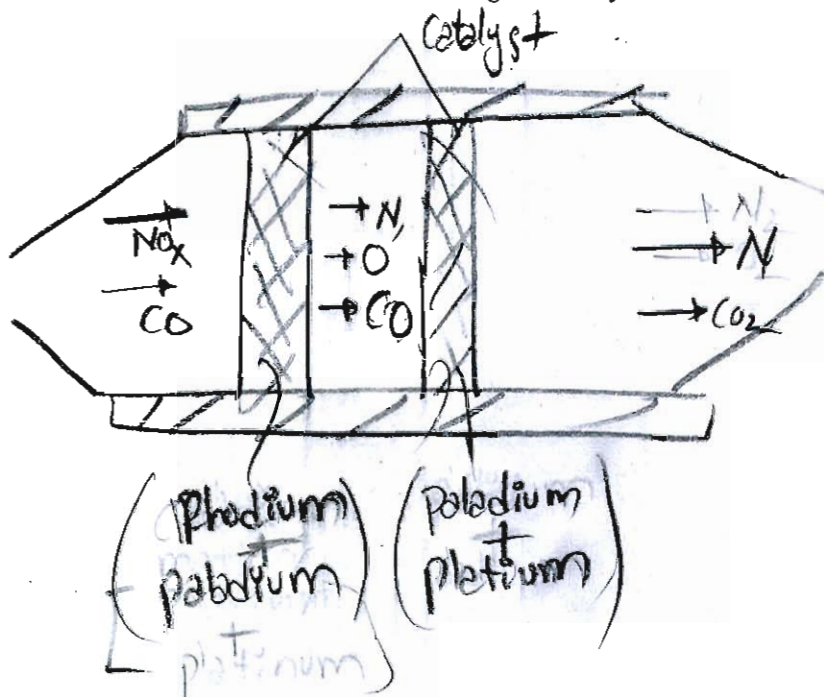 Catalyst
NOx
CO
N
O
CO
N2
N
CO2
(Rhodium
+
paladium
+
platinum)
(paladium
+
platium)